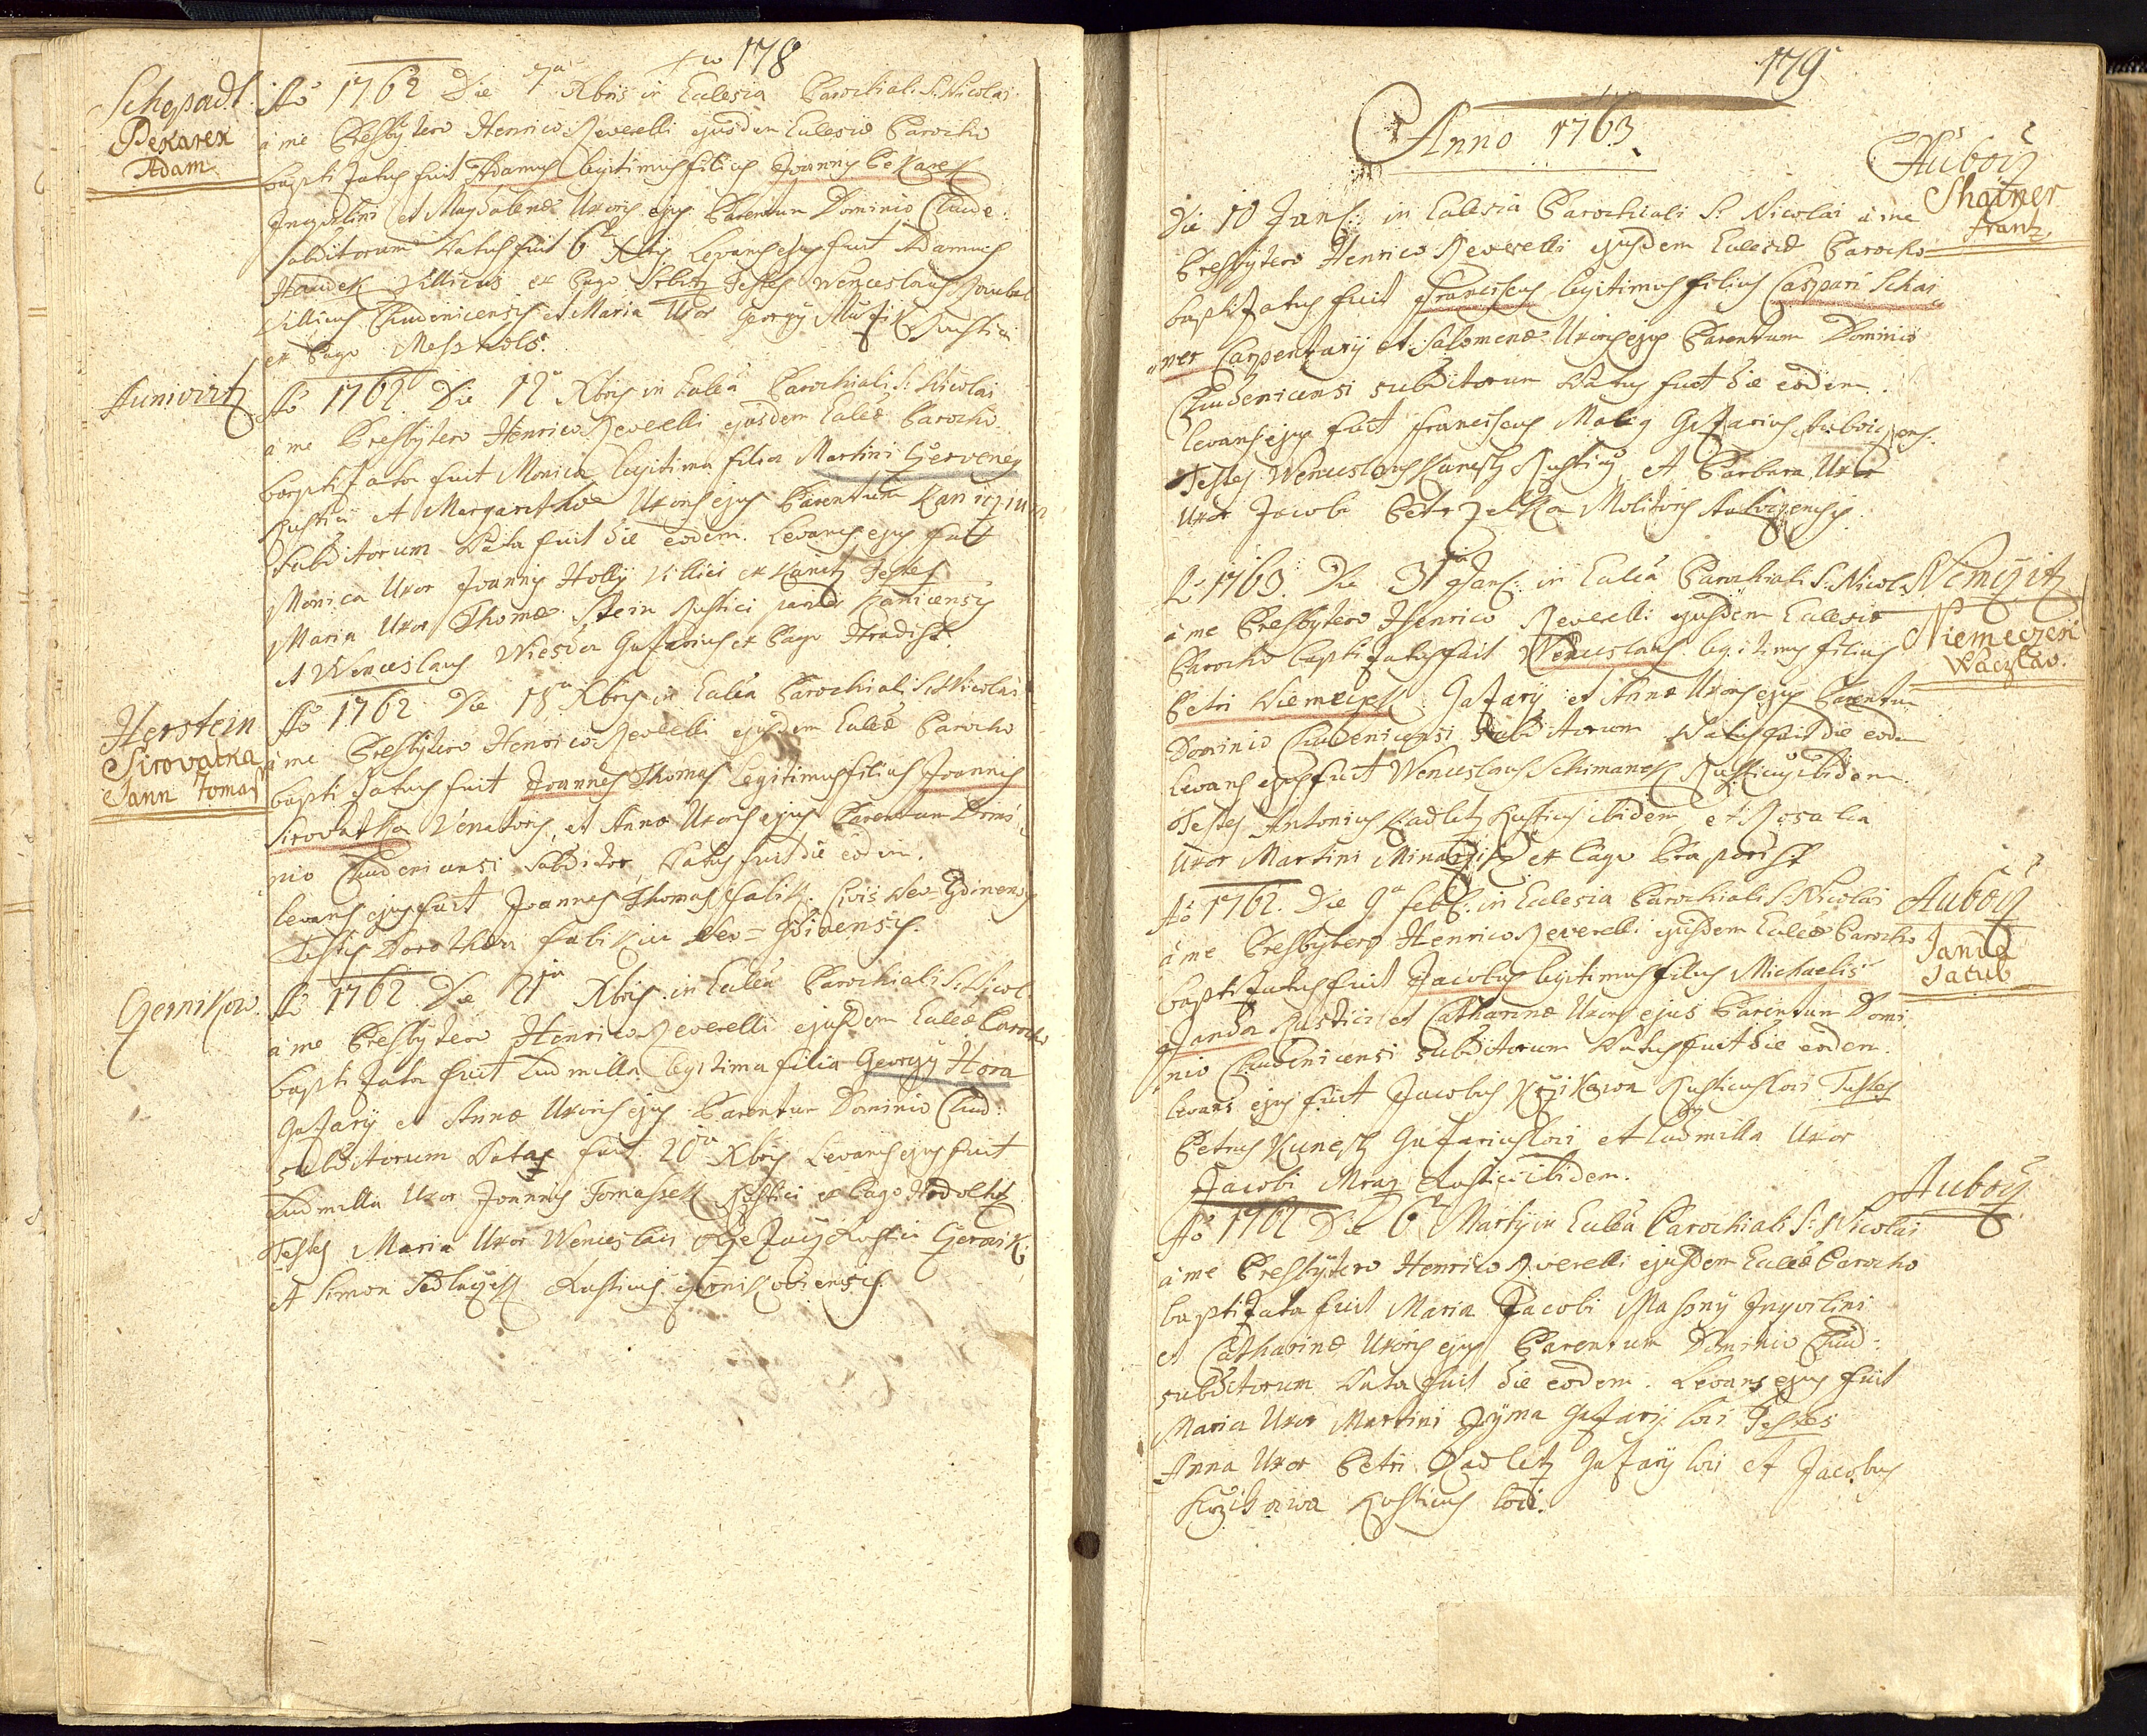 178
Schepadl
Pekarek
Adam
Aõ 1762 Die 7a Xbris in Ecclesia Parochiali S: Nicolai
à me Presbytero Henrico Reverelli ejusdem Ecclesiæ Parocho
baptizatus fuit Adamus legitimus filius Joannis Pekarek
Inquilini et Magdalenæ Uxoris ejus Parentum Dominio Chude:
subditorum Natus fuit 6ta Xbris Levans ejus fuit Adamus
Haudek Villicus ex Pago Srbitz Testes Wenceslaus Joubal
Villicus Chudenicensis et Maria Uxor Georgij Rustici
ex Pago Meszholz.
Aunioviz
Aõ 1762 Die 12a Xbris in Eccleã Parochiali S: Nicolai
à me Presbytero Henrico Reverelli ejusdem Eccleæ Parocho
baptizata fuit Monica legitima filia Martini Czerveney
Rustici et Margarethæ Uxoris ejus Parentum
Subditorum Nata fuit die eodem. Levans ejus fuit
Monica Uxor Joannis Holly Villici ex Kanitz Testes
Maria Uxor Thomæ Stein Rustici Kanicensis
et Wenceslaus Wiesda Gazarius ex Pago Hradist.
Herstein
Sirovatka
Jann Tomas
Aõ 1762 Die 18a Xbris in Eccleã Parochiali S: Nicolai
à me Presbytero Henrico Reverelli ejusdem Eccleæ Parocho
baptizatus fuit Joannes Thomas legitimus filius Joannis
Sirovatka Venatoris, et Annæ Uxoris ejus Parentum Domi
nio Chudenicensi Subditor, Natus fuit die eodem.
levans ejus fuit Joannes Thomas Falik Civis Neo-Gdinensis
Testis Dorothea Falikin Neo=Gdinensis.
Czernikow.
Aõ 1762 Die 21ja Xbris in Eccleã Parochiali S: Nicol
à me Presbytero Henrico Reverelli ejusdem Eccleæ Parocho
baptizata fuit Ludmilla legitima filia Georgij Hora
Gazarij et Annæ Uxoris ejus Parentum Dominio Chud:
subditorum Nata fuit 20ja Xbris Levans ejus fuit
Ludmilla Uxor Joannis Tomassek Rustici ex Pago
Testes Maria Uxor Wenceslai Rustici Czernik:
et Simon Sedlaczek Rusticus Czernikoviensis.
179
Anno 1763
Aubocz
Shainer
Frantz
Die 10 Jan: in Ecclesia Parochiali S: Nicolai à me
Presbytero Henrico Reverelli ejusdem Ecclesiæ Parocho
baptizatus fuit Franciscus legitimus filius Caspari Schai
ner Carpentarij et Salomenæ Uxoris ejus Parentum Dominio
Chudenicensi subditorum Natus fuit die eodem.
levans ejus fuit Franciscus Maliy Gazarius Auboczens:
Testes Wenceslaus Kunesh Rusticus et Barbara Uxor
Uxor Jacobi Petrzelka Molitoris Auboczensis.
Nemczitz
Niemeczek
Waczlav.
Aõ 1763. Die 31ja Jan: in Eccleã Parochiali S: Nicol:
à me Presbytero Henrico Reverelli ejusdem Ecclesiæ
Parocho baptizatus fuit Wenceslaus legitimus filius
Petri Niemeczek Gazarij et Annæ Uxoris ejus Parentum
Dominio Chudenicensi Subditorum Natus fuit die eodem
levans ejus fuit Wenceslaus Schimanek Rusticus ibidem.
Testes Antonius Kadletz Rusticus ibidem et Rosalia
Uxor Martini ex Pago Praporist
Auboci
Janda
Jacub
Aõ 1762. Die 9a Feb: in Ecclesia Parochiali S: Nicolai
à me Presbytero Henrico Reverelli ejusdem Eccleæ Parocho
baptizatus fuit Jacobus legitimus filius Michaelis
Janda Rustici et Catharinæ Uxoris ejus Parentum Domi
nio Chudenicensi subditorum Natus fuit die eodem.
levans ejus fuit Jacobus Krzikawa Rusticus loci Testes
Petrus Kunesh Gazarius loci et Ludmilla Uxor
Jacobi Mraz Rustici ibidem.
Auboci
Aõ 1762 Die 6ta Martij in Eccleã Parochiali S: Nicolai
à me Presbytero Henrico Reverelli ejusdem Eccleæ Parocho
baptizata fuit Maria Jacobi Inquilini
et Catharinæ Uxoris ejus Parentum Dominio Chud:
subditorum Nata fuit die eodem. Levans ejus fuit
Maria Uxor Martini Zyma Gazarij loci Testes
Anna Uxor Petri Kadletz Gazarij loci et Jacobus
Krzikawa Rusticus loci.